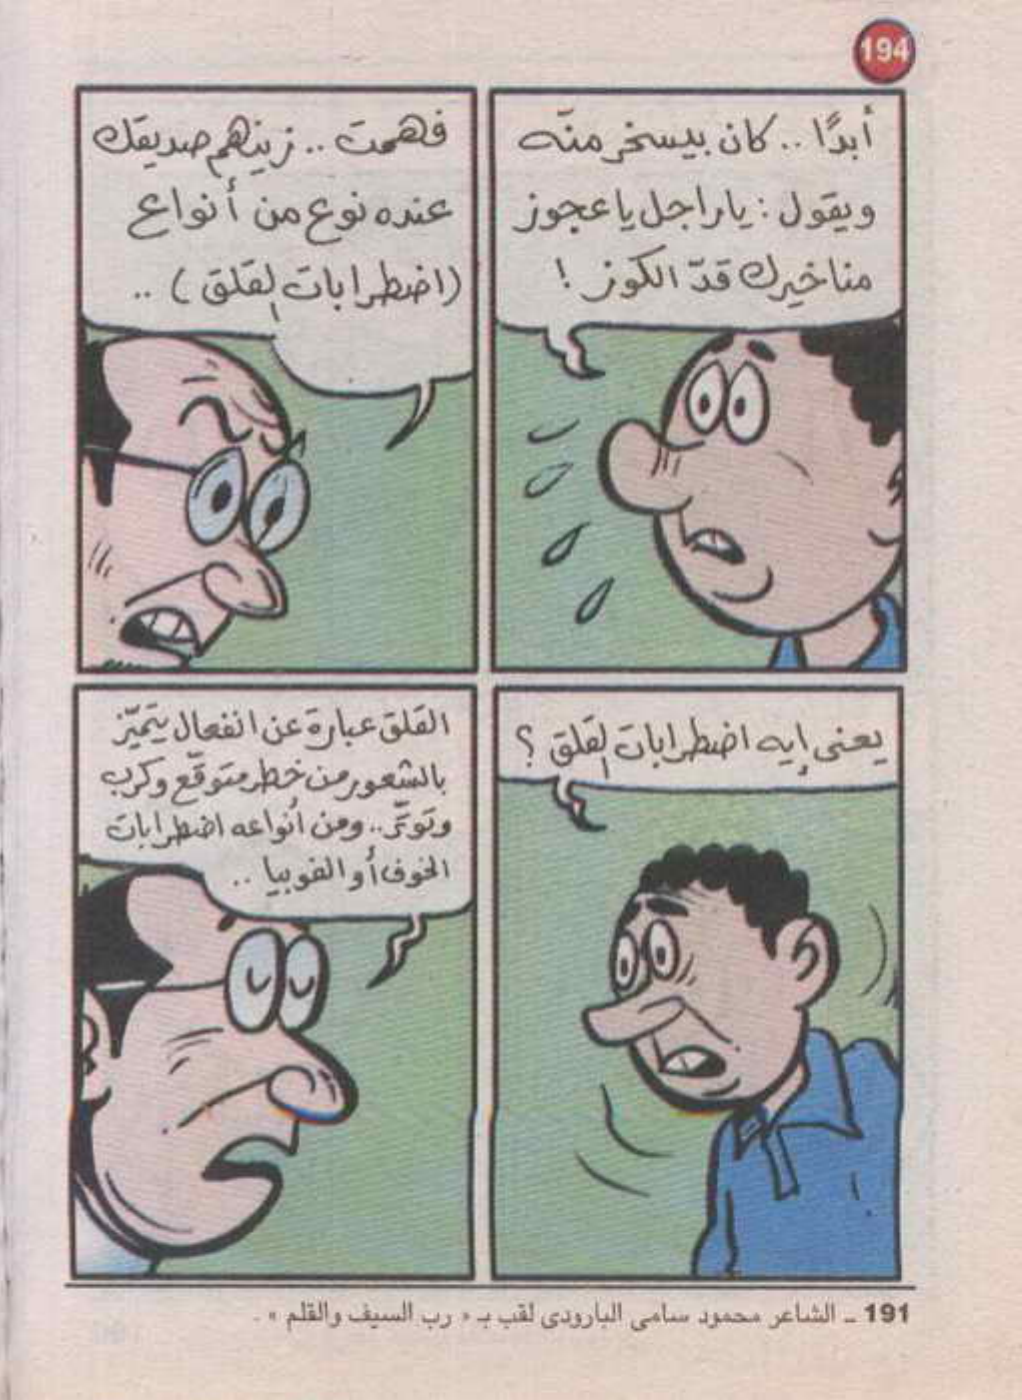 194
أبدًا .. كان بيسخر منّه
ويقول : ياراجل ياعجوز
مناخيرك قدّ الكوز !
فهمت .. زينهم صديقك
عنده نوع من أنواع
(اضطرابات القلق) ..
يعنى إيه اضطرابات القلق ؟
القلق عبارة عن انفعال يتميّز
بالشعور من خطر متوقّع وكرب
وتوتّر .. ومن أنواعه اضطرابات
الخوف أو الفوبيا ..
191 ــ الشاعر محمود سامى البارودى لقب بـ « رب السيف والقلم » .